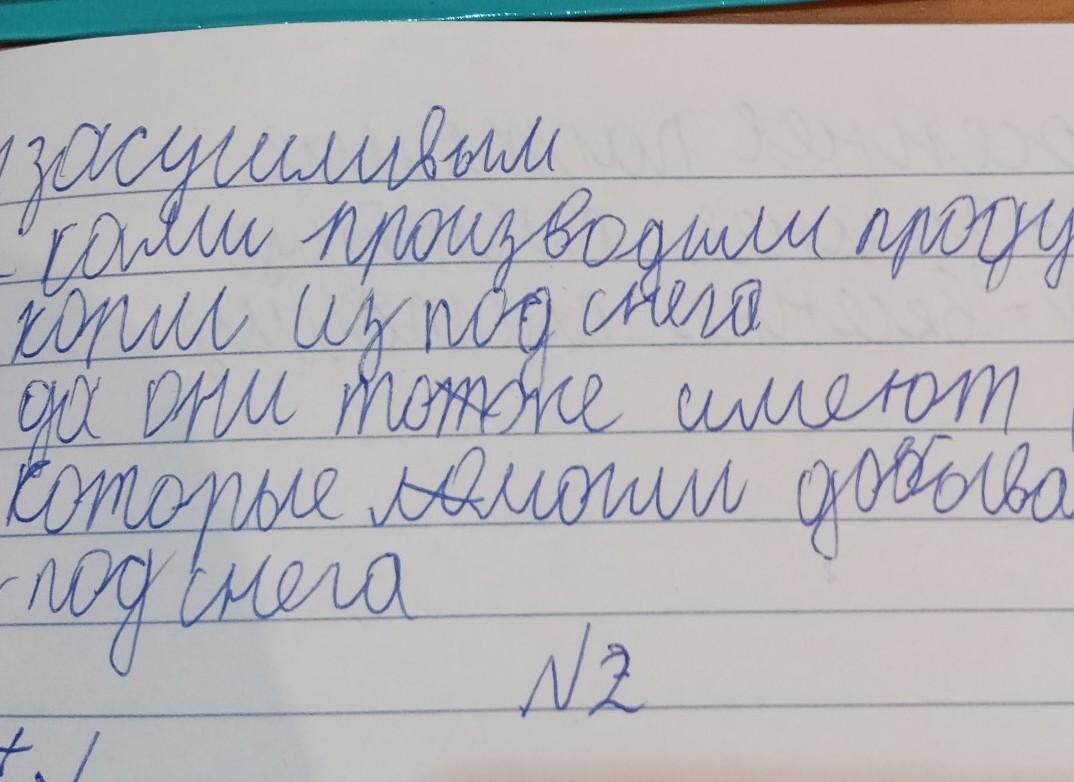 засушливым
ками производили проду
корм из под снега
да они тоже имеют
которые могли добыва
-под снега
N2